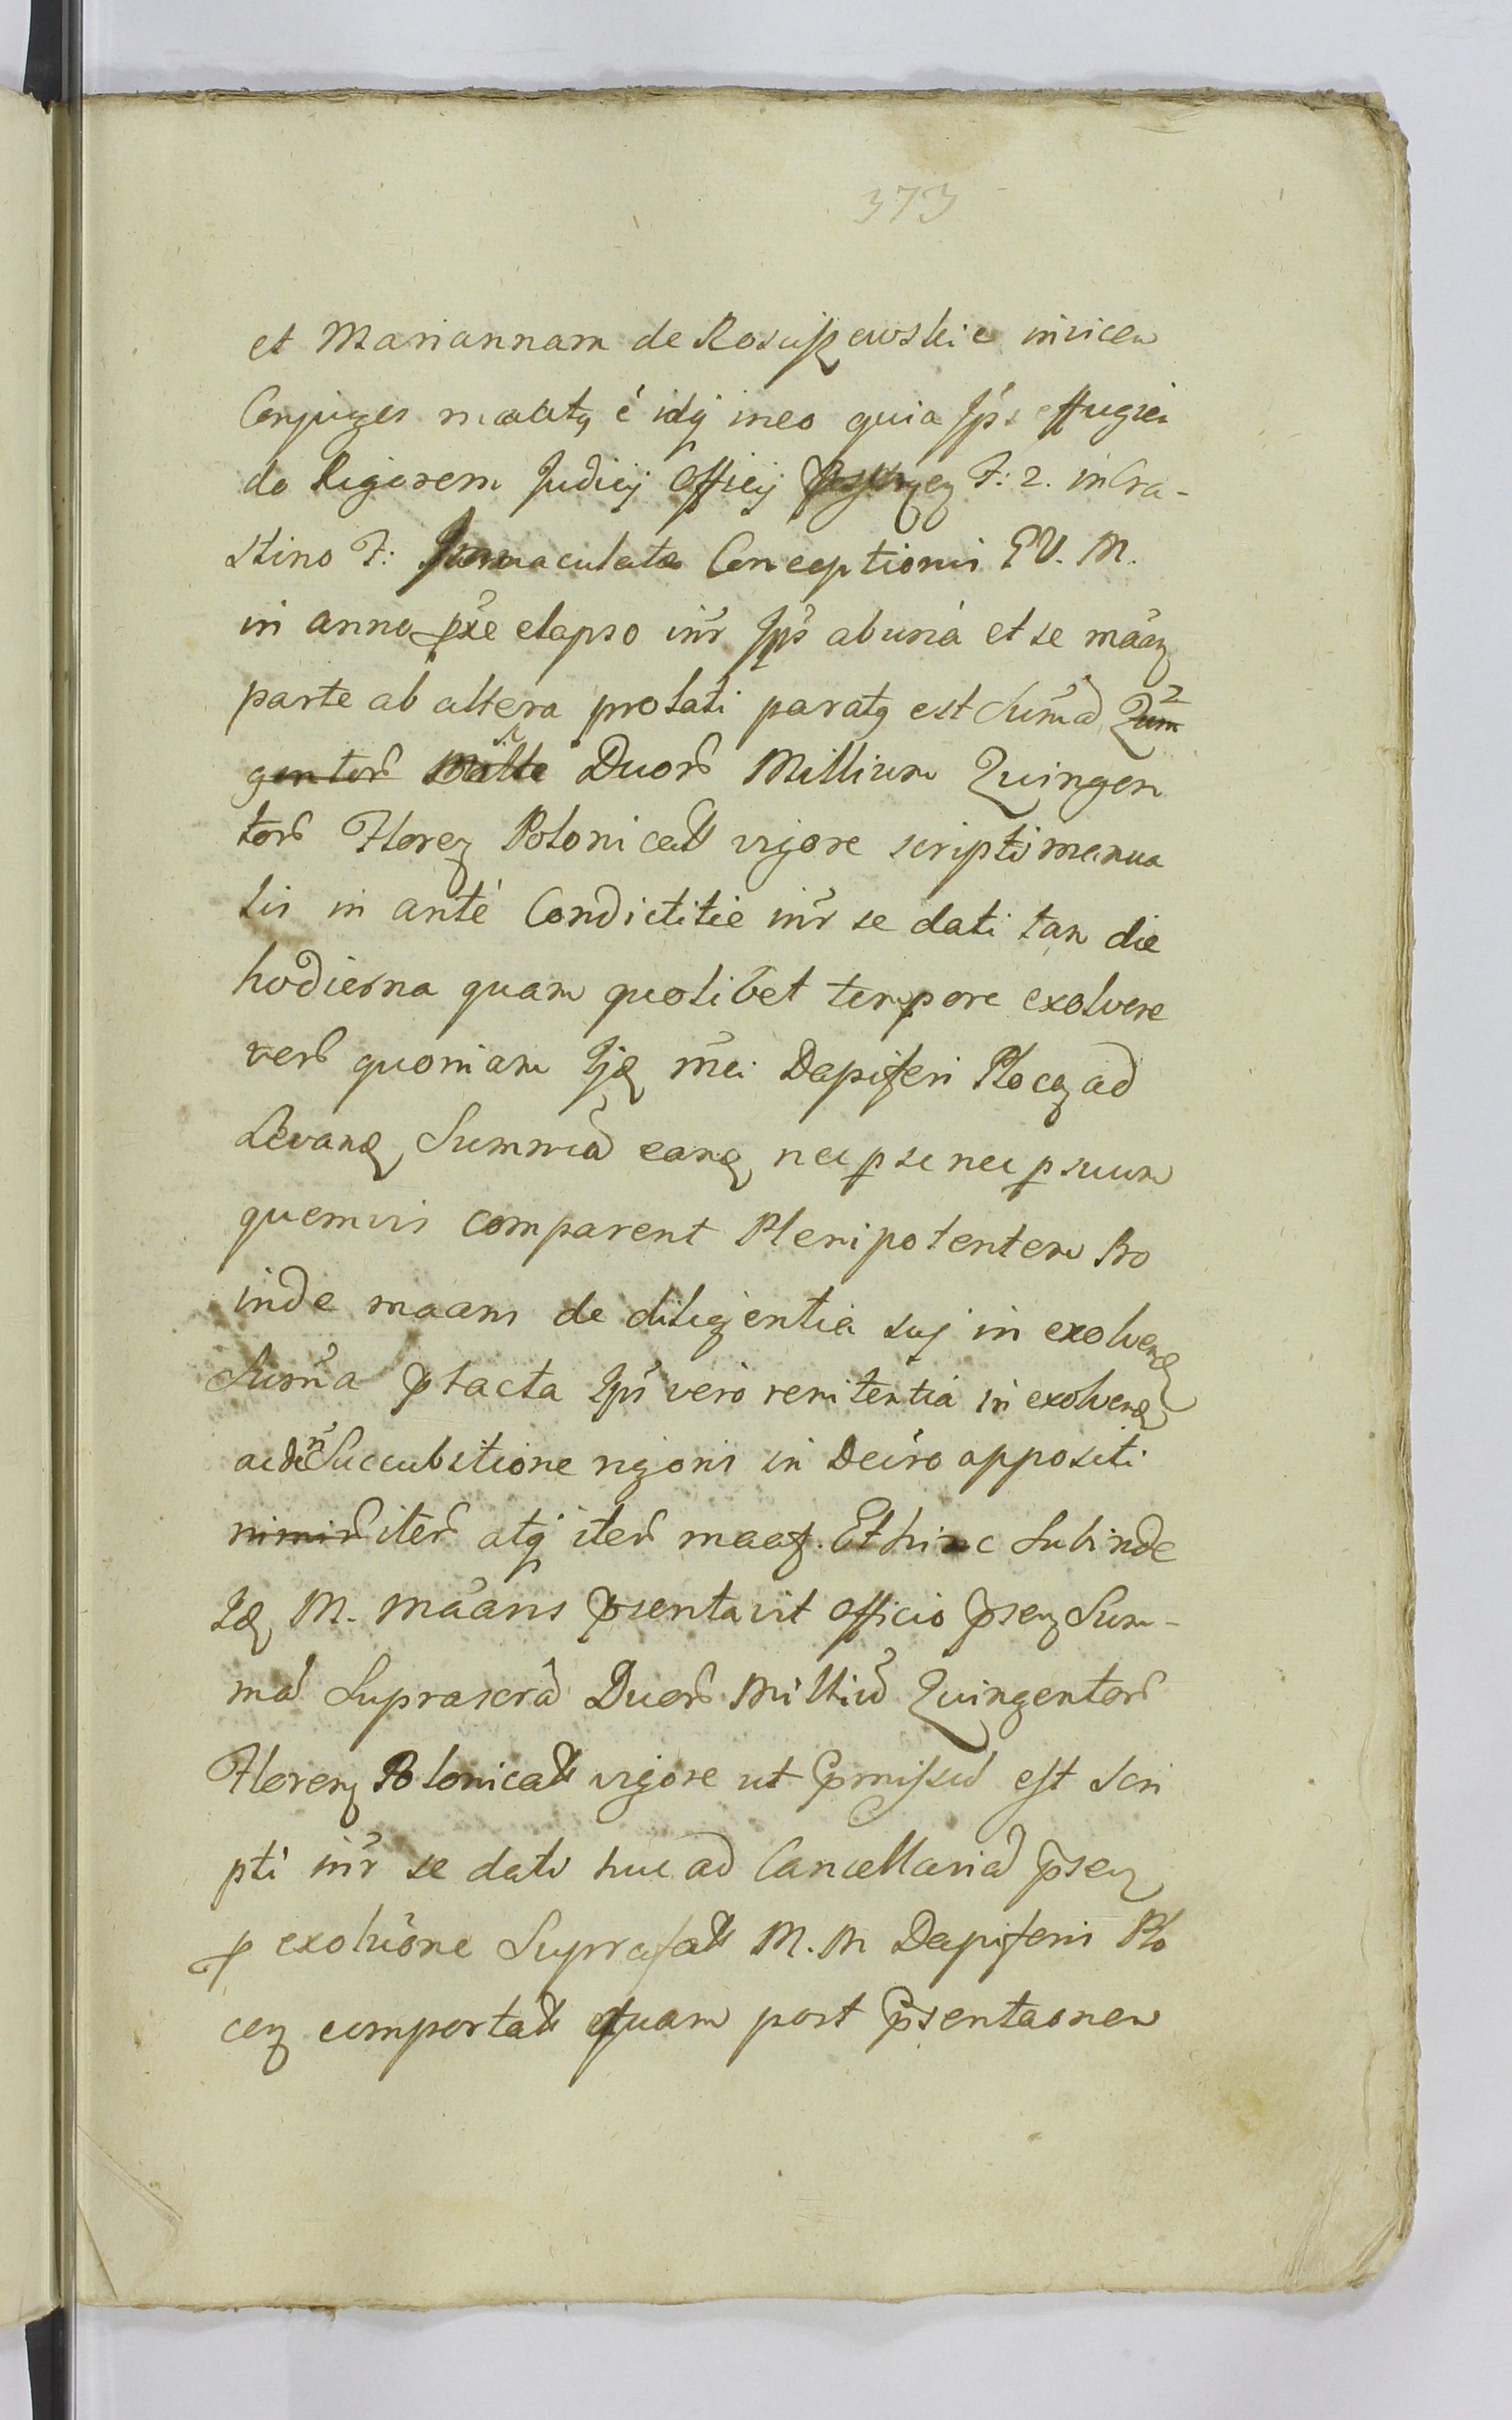 373
et Mariannam de Rosciszewskie invicem
Conjuges maatq é idq ineo quia Ips effugien
do Rigorem Judicij Officij F: 2. in Cra-
stino F: Immaculatae Conceptionis B V. M.
in anno pxe elapso intr Ips ab una et se maaz
parte ab altera prolati paratq est Summa
Duor Millium Quingen
tor Florez Polonical vigore scripti manua
lis in ante Condictitie intr se dati tam die
hodierna quam quolibet tempore exolvere
vero quoniam Ijd mci Dapiferi Plocz ad
Levand Summa eand nec p se nec p suum
quemvis comparent Plenipotentem Pro
inde maans de diligentia sui in exolvend
Summa ptacta Ips vero renitentia in exolvend
ac Succubitione rigoris in Decro appositi
iter atq iter maaz. Et hinc Subinde
Id M. Maans psentavit officio psenz Sum-
ma Suprascra Duor Milliu Quingentor
Florenz Polonical vigore ut pmissu est Scri
pti intr se dati huc ad Cancellaria psenz
p exolutione Suprafat M. M Dapiferis Plo
cenz comportat quam post psentaonem